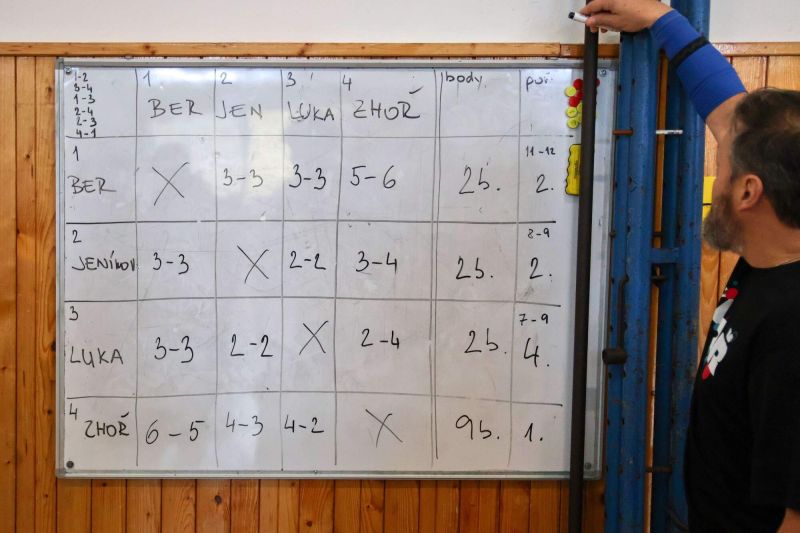 1-2
3-4
1-3
2-4
2-3
4-1
1 2 3 4 body poř.
BER JEN LUKA ZHOŘ
1 11-12
BER X 3-3 3-3 5-6 2b. 2.
2 8-9
JENÍKOV 3-3 X 2-2 3-4 2b. 2.
3 7-9
LUKA 3-3 2-2 X 2-4 2b. 4.
4
ZHOŘ 6-5 4-3 4-2 X 9b. 1.